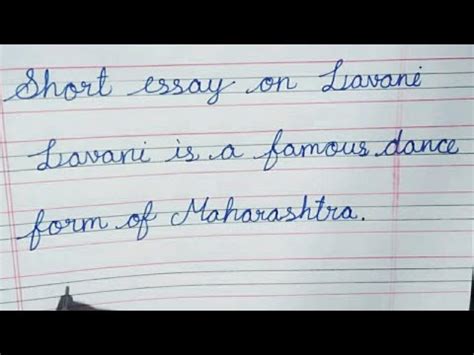 Short essay on Lavani
Lavani is a famous dance
form of Maharashtra.